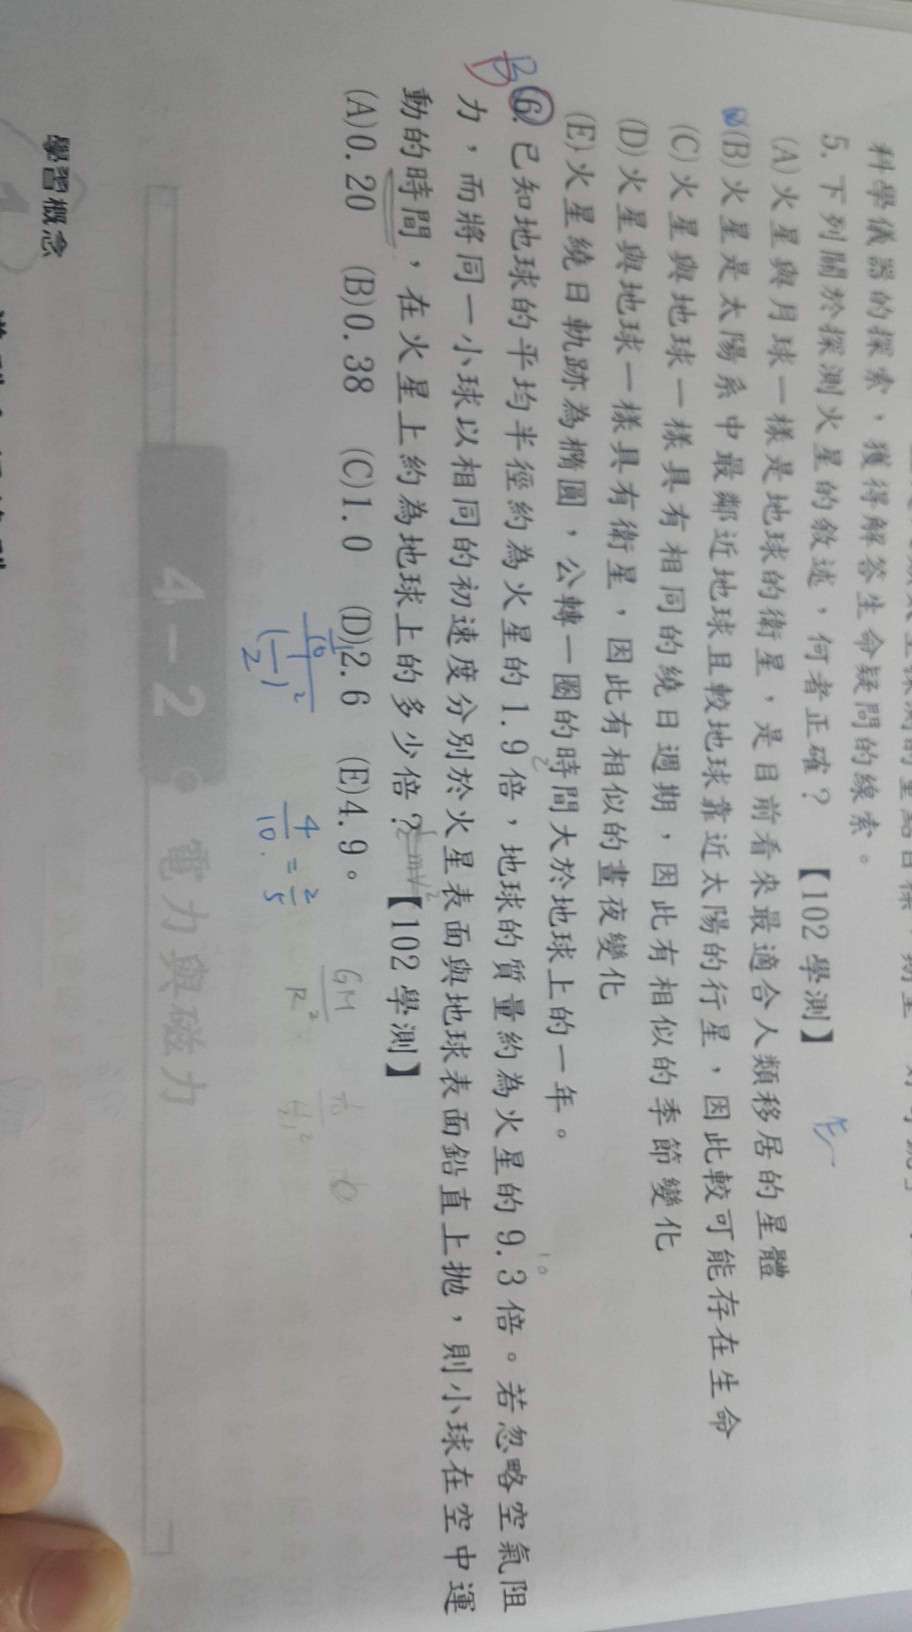 科學儀器的探索，獲得解答生命疑問的線索。
5. 下列關於探測火星的敘述，何者正確？ 【102 學測】
(A)火星與月球一樣是地球的衛星，是目前看來最適合人類移居的星體
(B)火星是太陽系中最鄰近地球且較地球靠近太陽的行星，因此較可能存在生命
(C)火星與地球一樣具有相同的繞日週期，因此有相似的季節變化
(D)火星與地球一樣具有衛星，因此有相似的晝夜變化
(E)火星繞日軌跡為橢圓，公轉一圈的時間大於地球上的一年。
B 6. 已知地球的平均半徑約為火星的 1.9 倍，地球的質量約為火星的 9.3 倍。若忽略空氣阻
力，而將同一小球以相同的初速度分別於火星表面與地球表面鉛直上拋，則小球在空中運
動的時間，在火星上約為地球上的多少倍？【102 學測】
(A)0.20 (B)0.38 (C)1.0 (D)2.6 (E)4.9。
4/10 = 2/5
GM/R²
4-2 電力與磁力
學習概念